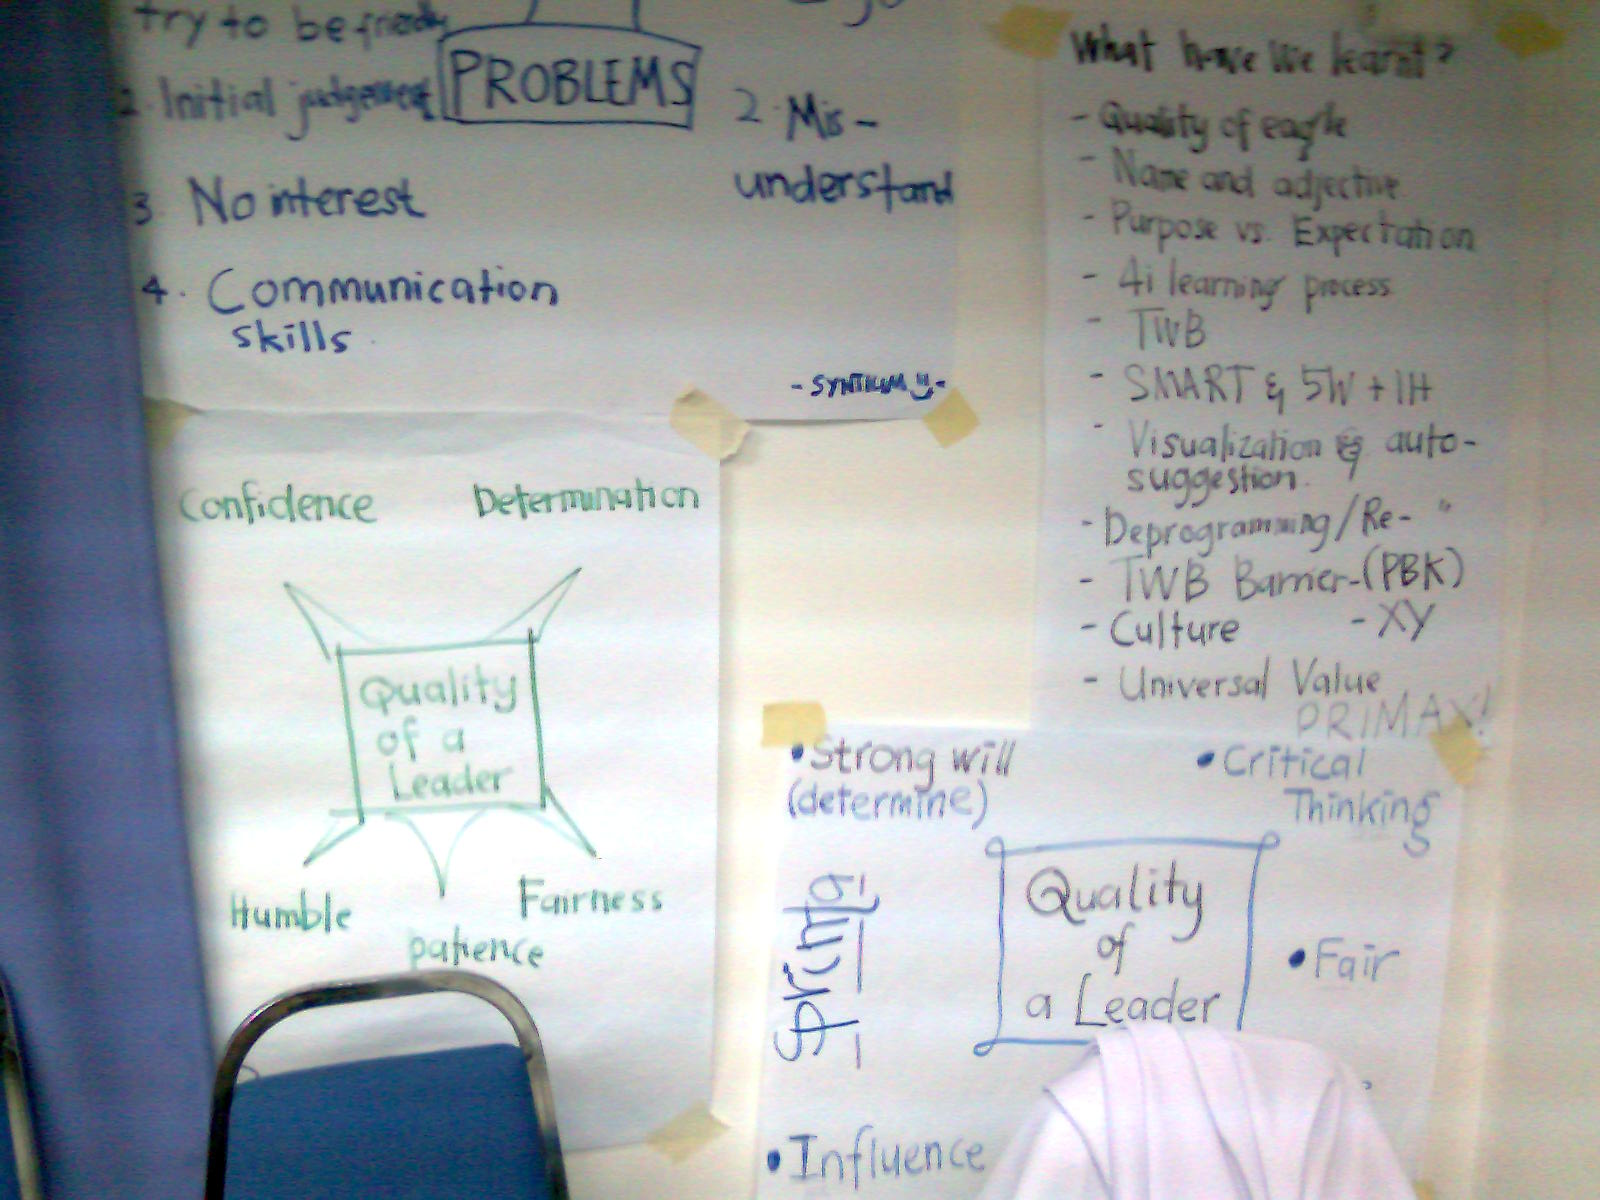 try to be friendly
PROBLEMS
2. Initial judgement
2. Mis-
understand
3 No interest
4. Communication
skills.
- SYNTIUM -
Confidence
Determination
Quality
of a
Leader
Humble
Fairness
patience
What have we learnt?
- Quality of eagle
- Name and adjective
- Purpose vs. Expectation
- 4i learning process
- TWB
- SMART & 5W + 1H
- Visualization & auto-
suggestion.
- Deprogramming/Re- "
- TWB Barrier-(PBK)
- Culture - XY
- Universal Value
PRIMAX!
• Strong will
(determine)
• Critical
Thinking
Sprinta
Quality
of
a Leader
• Fair
• Influence